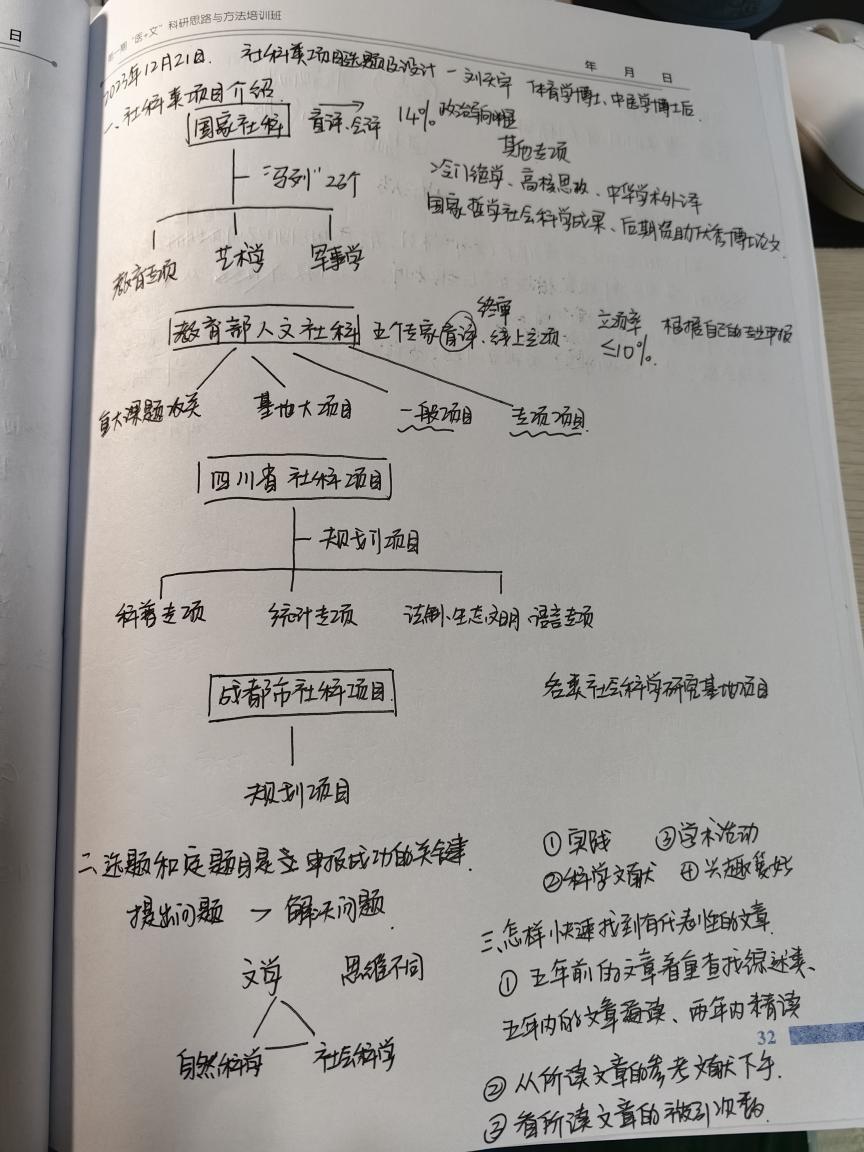 日
第一期“医+文”科研思路与方法培训班
年 月 日
2023年12月21日. 社科类项目选题及设计 — 刘天宇 体育学博士、中医学博士后.
一、社科类项目介绍
国家社科 盲评、会评 14% 政治导向明显
其他专项
“马列” 23个 冷门绝学、高校思政、中华学术外译
国家哲学社会科学成果、后期资助优秀博士论文.
教育专项 艺术学 军事学
教育部人文社科 五个专家盲评、线上立项 终审 立项率 ≤10%. 根据自己的专业申报
重大课题攻关 基地大项目 一般项目 专项项目.
四川省社科项目
规划项目
科普专项 统计专项 法制、生态文明、语言专项
成都市社科项目. 各类社会科学研究基地项目
规划项目
二、选题和定题目是 申报成功的关键.
提出问题 → 解决问题.
①实践 ③学术活动
②科学文献 ④兴趣爱好
文学 思维不同
自然科学 社会科学
三、怎样快速找到有代表性的文章.
① 五年前的文章着重查找综述类、
五年内的文章遍读、两年内精读
② 从所读文章的参考文献下手.
③ 看所读文章的被引次数.
32